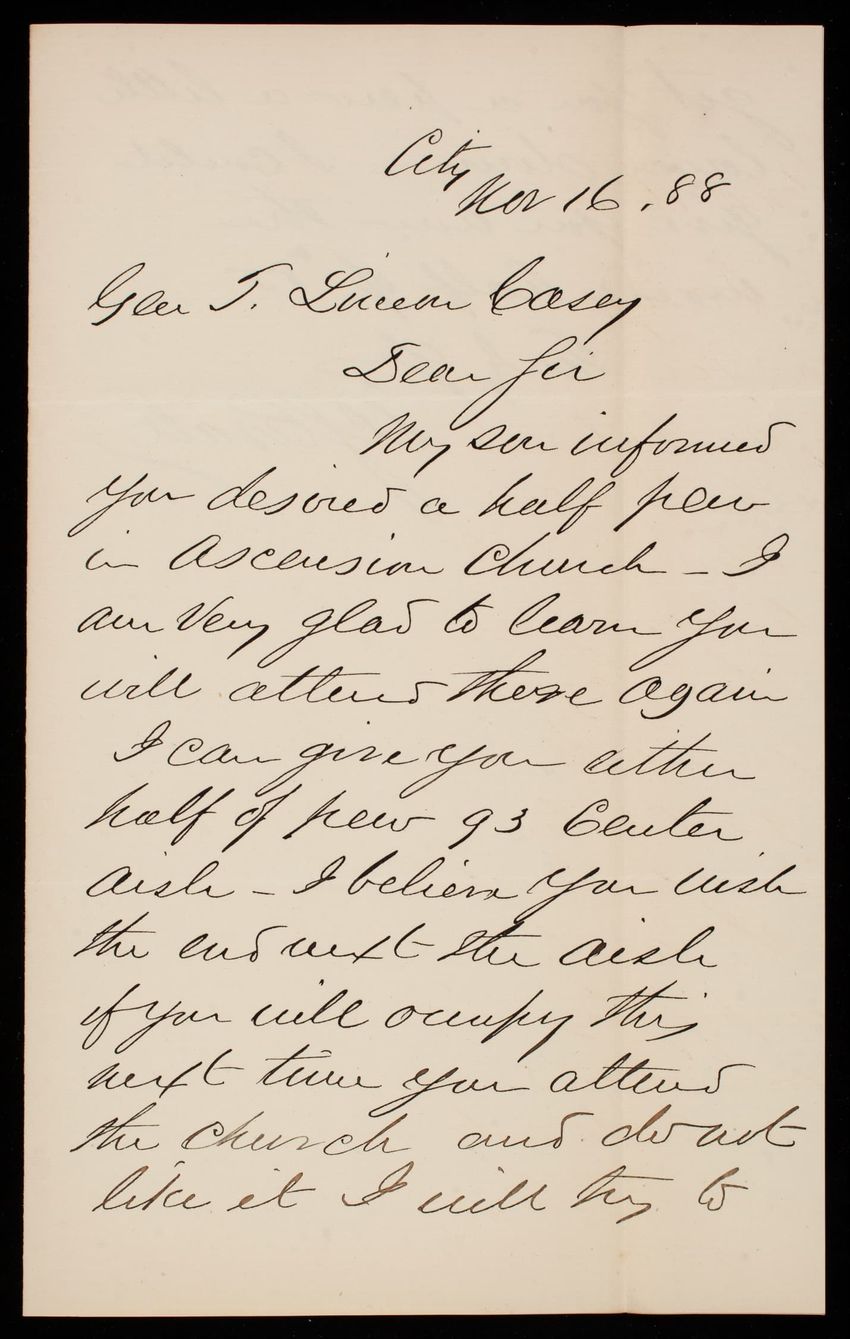 City
Nov 16. 88
Gen T. Lincoln Casey
Dear Sir
My son informed
you desired a half pew
in Ascension Church - I
am very glad to learn you
will attend there again
I can give you either
half of pew 93 Center
aisle - I believe you wish
the end next the aisle
if you will occupy this
next time you attend
the church and do not
like it I will try to